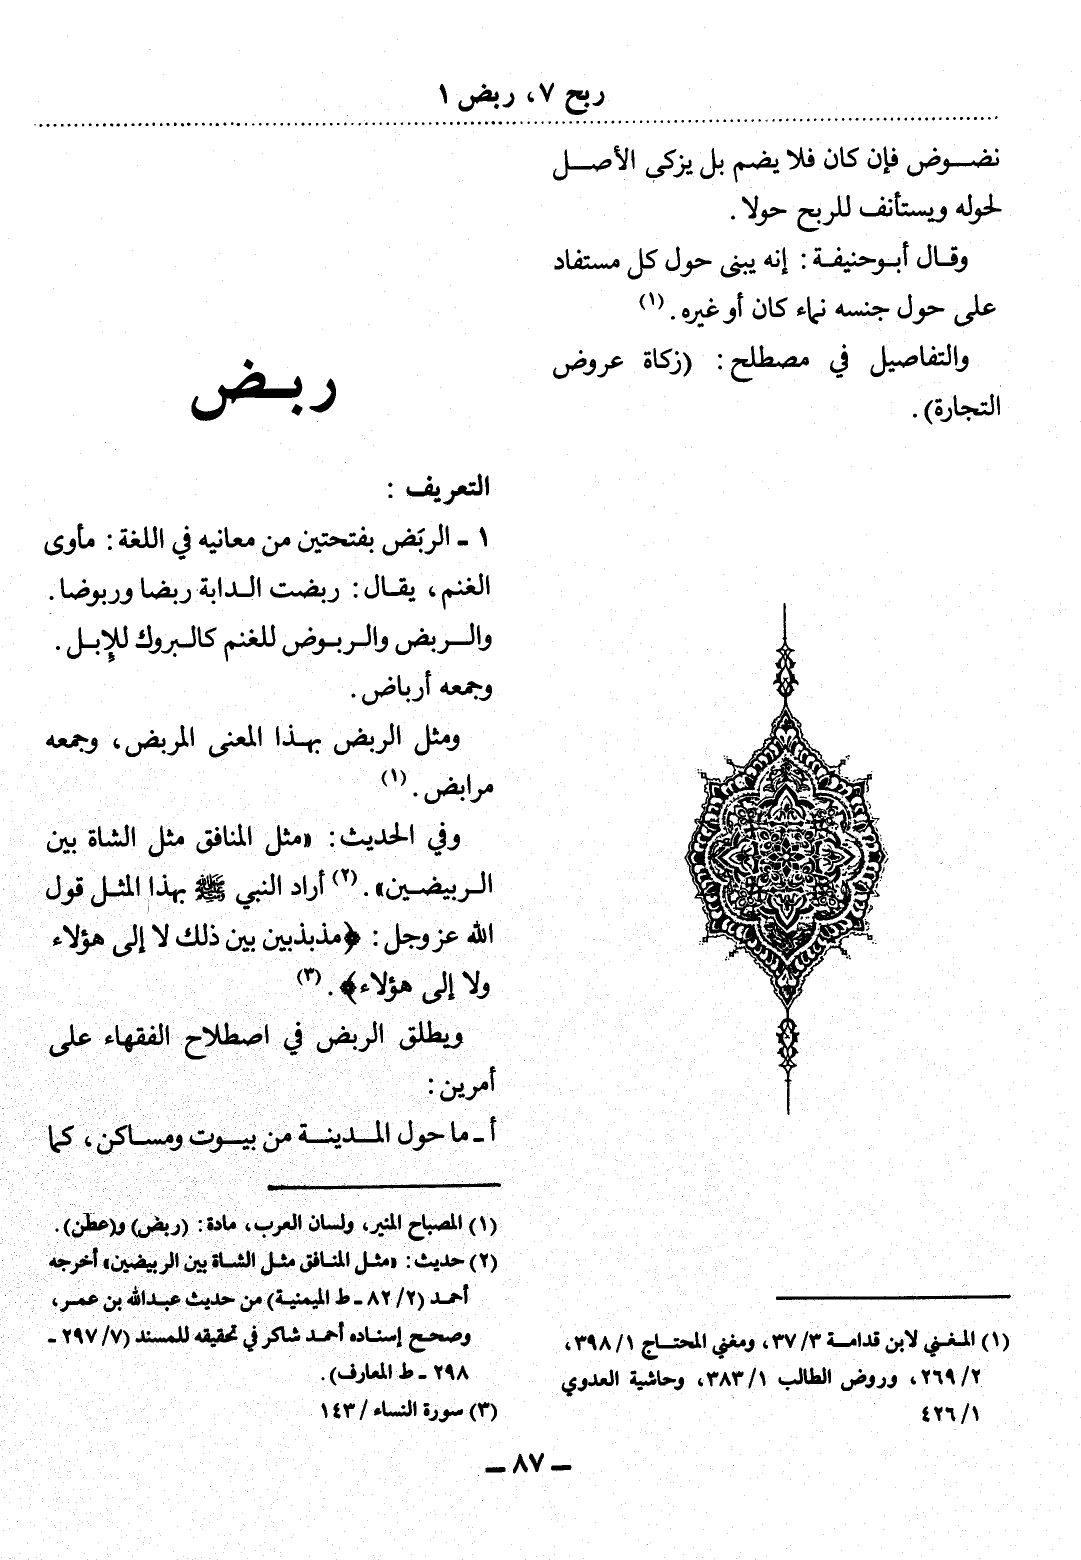 ربح ٧، ربض ١
نضوض فإن كان فلا يضم بل يزكى الأصل
لحوله ويستأنف للربح حولا.
وقال أبوحنيفة: إنه يبنى حول كل مستفاد
على حول جنسه نماء كان أو غيره. (١)
والتفاصيل في مصطلح: (زكاة عروض
التجارة).
(١) المغني لابن قدامة ٣/ ٣٧، ومغني المحتاج ١/ ٣٩٨،
٢/ ٢٦٩، وروض الطالب ١/ ٣٨٣، وحاشية العدوي
١/ ٤٢٦
ربض
التعريف :
١ ـ الربَض بفتحتين من معانيه في اللغة: مأوى
الغنم، يقال: ربضت الدابة ربضا وربوضا.
والربض والربوض للغنم كالبروك للإبل.
وجمعه أرباض.
ومثل الربض بهذا المعنى المربض، وجمعه
مرابض. (١)
وفي الحديث: «مثل المنافق مثل الشاة بين
الربيضين». (٢) أراد النبي ﷺ بهذا المثل قول
الله عز وجل: ﴿مذبذبين بين ذلك لا إلى هؤلاء
ولا إلى هؤلاء﴾. (٣)
ويطلق الربض في اصطلاح الفقهاء على
أمرين:
أ ـ ما حول المدينة من بيوت ومساكن، كما
(١) المصباح المنير، ولسان العرب، مادة: (ربض) و(عطن).
(٢) حديث: «مثل المنافق مثل الشاة بين الربيضين» أخرجه
أحمد (٢/ ٨٢ ـ ط الميمنية) من حديث عبدالله بن عمر،
وصحح إسناده أحمد شاكر في تحقيقه للمسند (٧/ ٢٩٧ ـ
٢٩٨ ـ ط المعارف).
(٣) سورة النساء / ١٤٣
ـ ٨٧ ـ